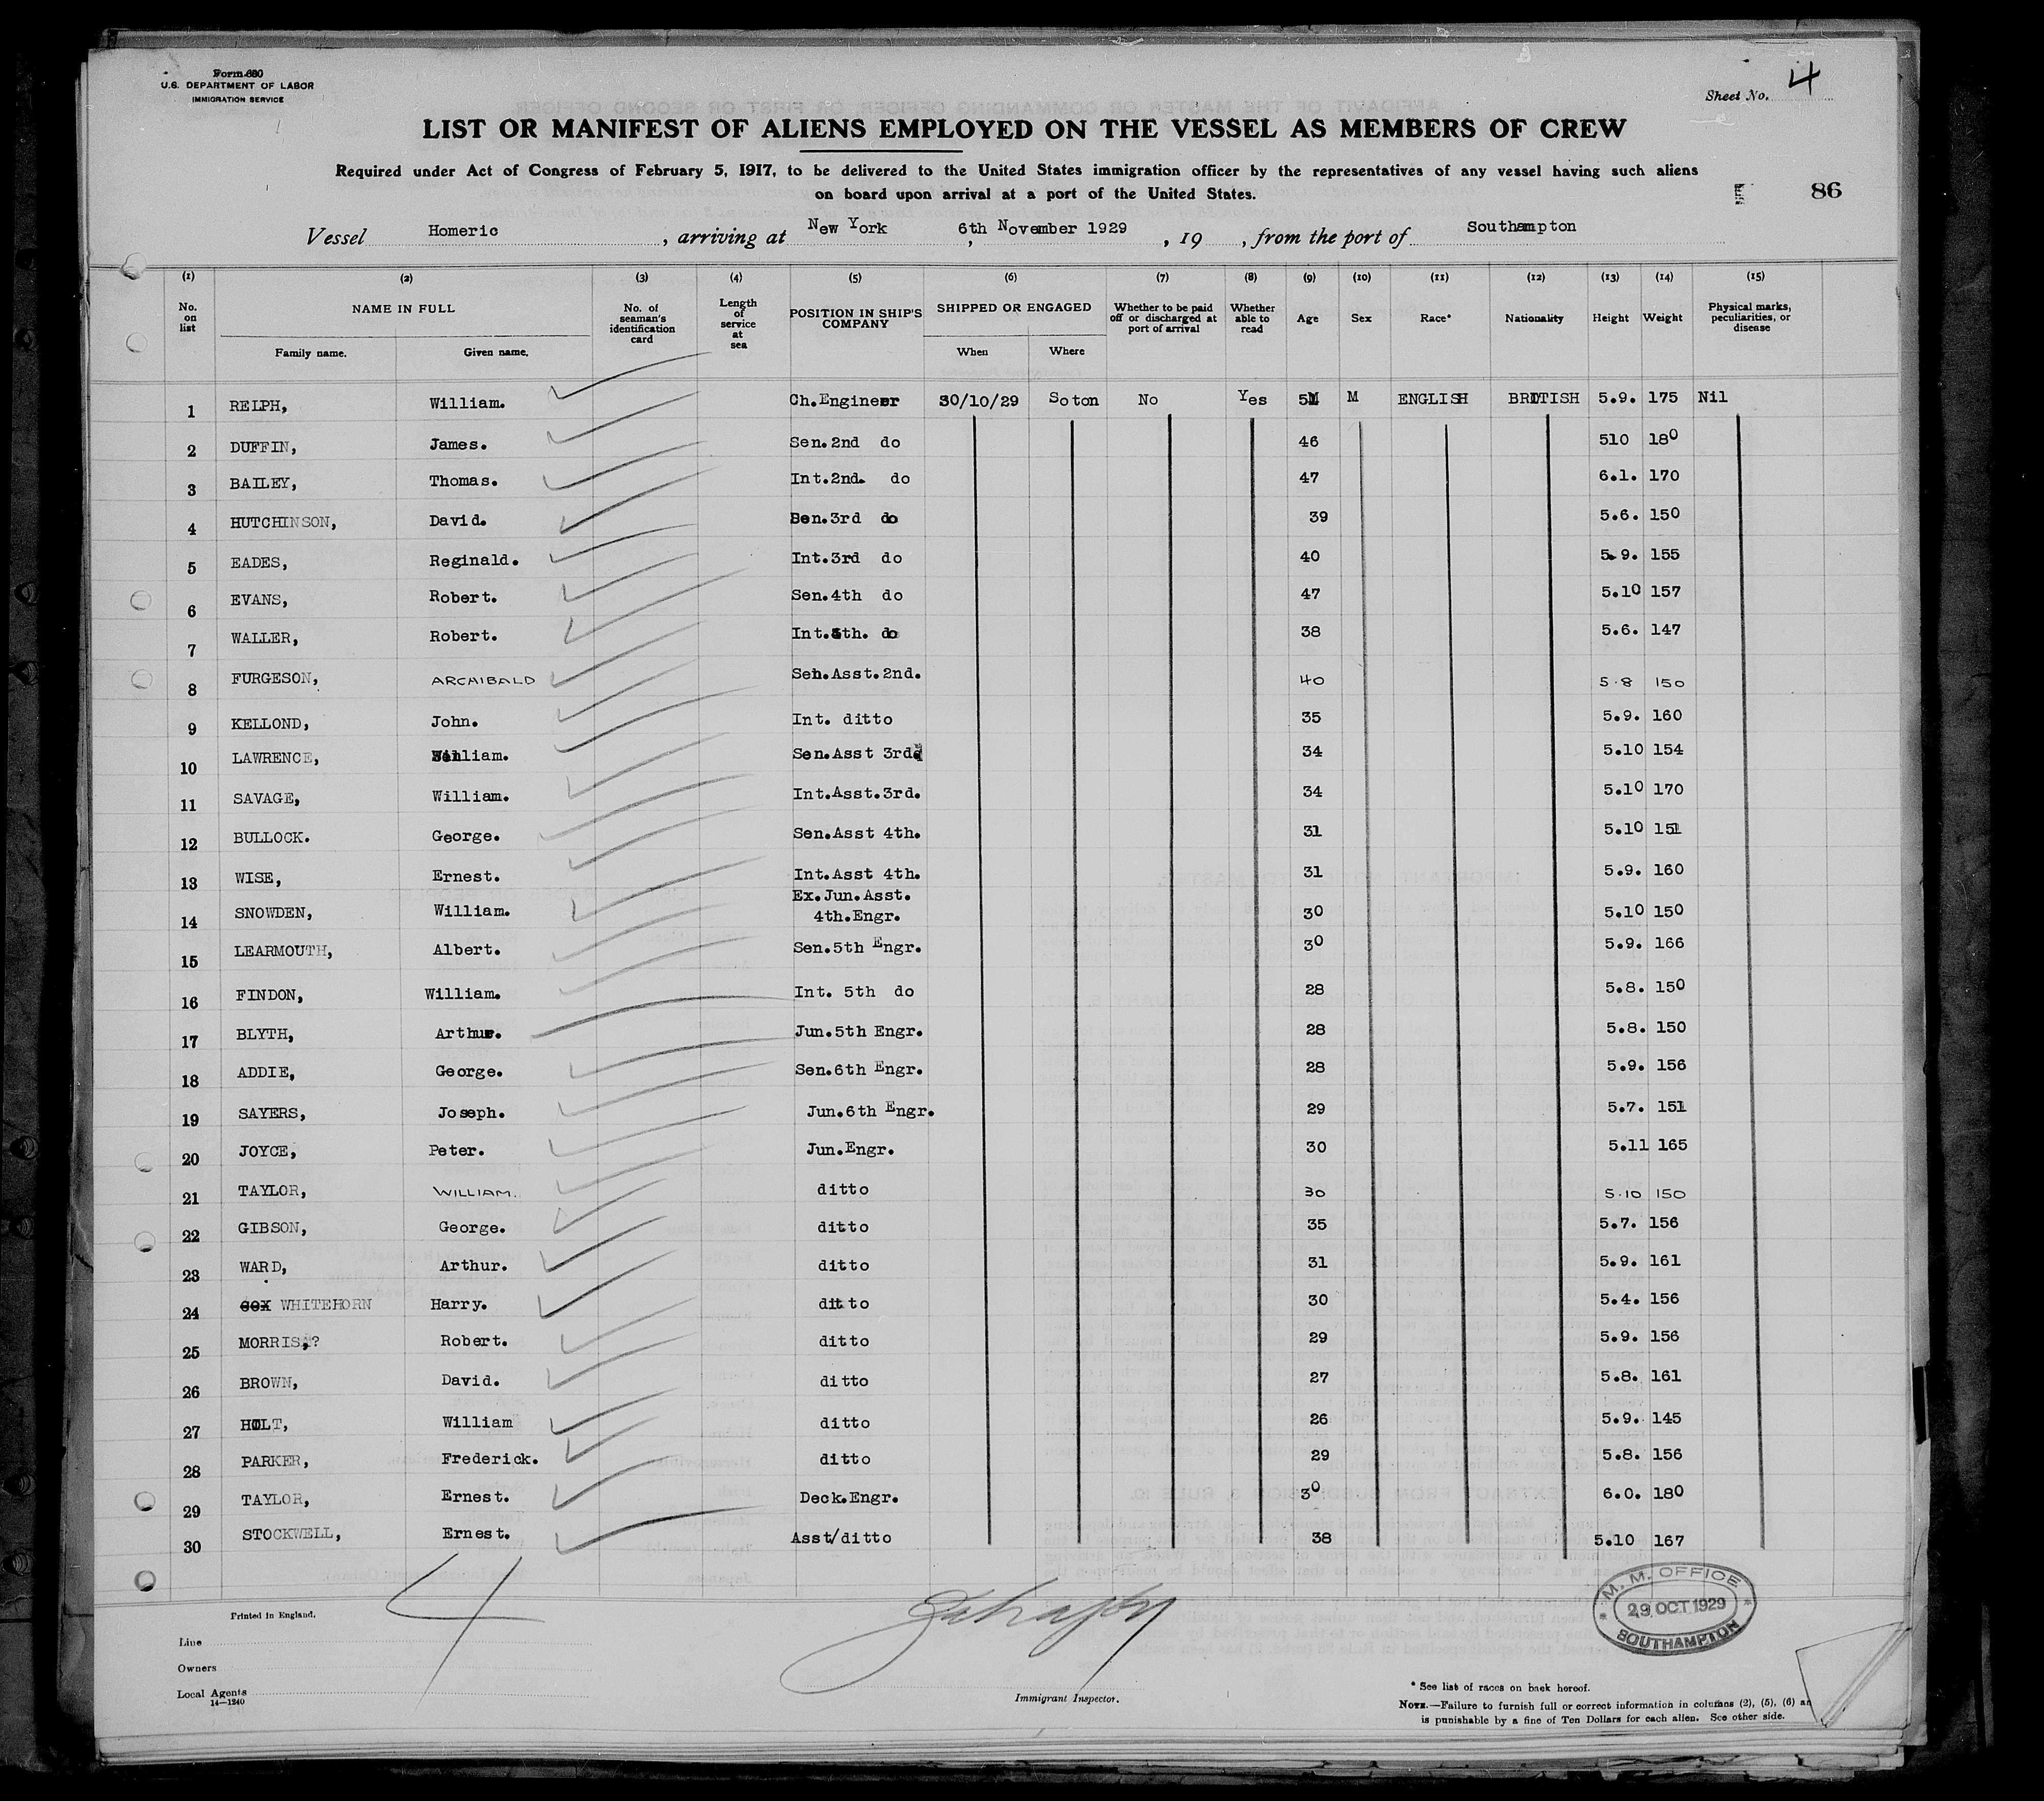 Form 680
U.S. DEPARTMENT OF LABOR
IMMIGRATION SERVICE
Sheet No. 4
LIST OR MANIFEST OF ALIENS EMPLOYED ON THE VESSEL AS MEMBERS OF CREW
Required under Act of Congress of February 5, 1917, to be delivered to the United States immigration officer by the representatives of any vessel having such aliens
on board upon arrival at a port of the United States.
86
Vessel Homeric, arriving at New York 6th November 1929, 19 , from the port of Southampton
(1) (2) (3) (4) (5) (6) (7) (8) (9) (10) (11) (12) (13) (14) (15)
No. on list NAME IN FULL No. of seaman's identification card Length of service at sea POSITION IN SHIP'S COMPANY SHIPPED OR ENGAGED Whether to be paid off or discharged at port of arrival Whether able to read Age Sex Race* Nationality Height Weight Physical marks, peculiarities, or disease
Family name. Given name. When Where
1 RELPH, William. Ch.Engineer 30/10/29 Soton No Yes 51 M ENGLISH BRITISH 5.9. 175 Nil
2 DUFFIN, James. Sen.2nd do 46 510 180
3 BAILEY, Thomas. Int.2nd. do 47 6.1. 170
4 HUTCHINSON, David. Sen.3rd do 39 5.6. 150
5 EADES, Reginald. Int.3rd do 40 5.9. 155
6 EVANS, Robert. Sen.4th do 47 5.10 157
7 WALLER, Robert. Int.4th. do 38 5.6. 147
8 FURGESON, ARCHIBALD Sen.Asst.2nd. 40 5.8 150
9 KELLOND, John. Int. ditto 35 5.9. 160
10 LAWRENCE, William. Sen.Asst 3rd. 34 5.10 154
11 SAVAGE, William. Int.Asst.3rd. 34 5.10 170
12 BULLOCK. George. Sen.Asst 4th. 31 5.10 151
13 WISE, Ernest. Int.Asst 4th. 31 5.9. 160
14 SNOWDEN, William. Ex.Jun.Asst. 4th.Engr. 30 5.10 150
15 LEARMOUTH, Albert. Sen.5th Engr. 30 5.9. 166
16 FINDON, William. Int. 5th do 28 5.8. 150
17 BLYTH, Arthur. Jun.5th Engr. 28 5.8. 150
18 ADDIE, George. Sen.6th Engr. 28 5.9. 156
19 SAYERS, Joseph. Jun.6th Engr. 29 5.7. 151
20 JOYCE, Peter. Jun.Engr. 30 5.11 165
21 TAYLOR, WILLIAM. ditto 30 5.10 150
22 GIBSON, George. ditto 35 5.7. 156
23 WARD, Arthur. ditto 31 5.9. 161
24 COX WHITEHORN Harry. ditto 30 5.4. 156
25 MORRIS,? Robert. ditto 29 5.9. 156
26 BROWN, David. ditto 27 5.8. 161
27 HOLT, William ditto 26 5.9. 145
28 PARKER, Frederick. ditto 29 5.8. 156
29 TAYLOR, Ernest. Deck.Engr. 30 6.0. 180
30 STOCKWELL, Ernest. Asst/ditto 38 5.10 167
4
M. M. OFFICE
29 OCT 1929
SOUTHAMPTON
Printed in England.
Line
Owners
Local Agents
14—1240
Immigrant Inspector.
* See list of races on back hereof.
NOTE.—Failure to furnish full or correct information in columns (2), (5), (6)
is punishable by a fine of Ten Dollars for each alien. See other side.